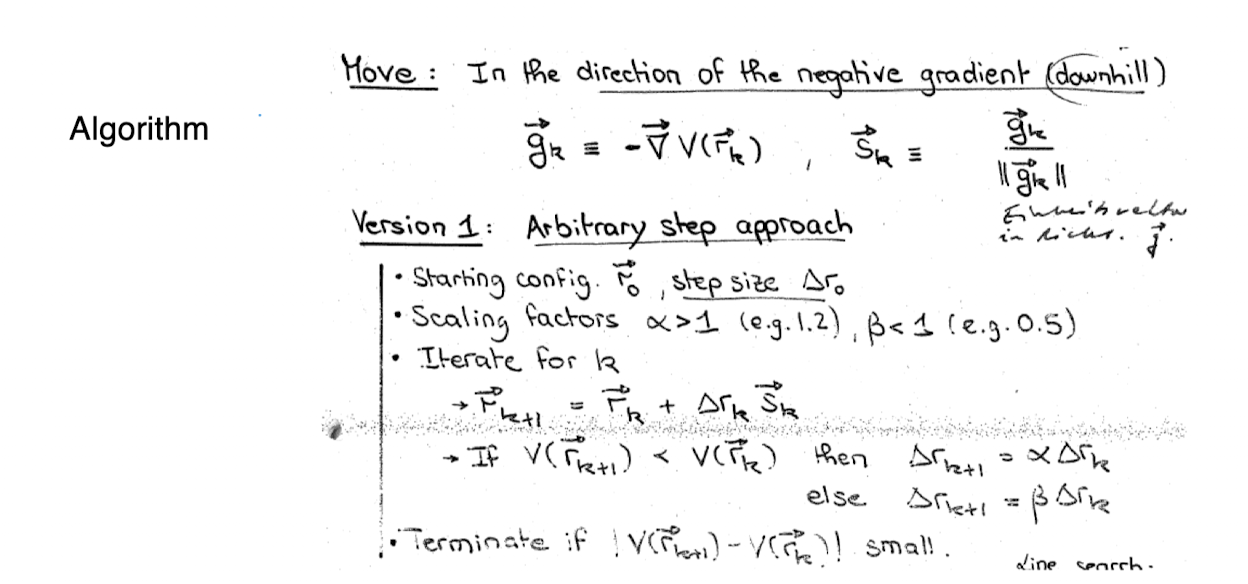 Move : In the direction of the negative gradient (downhill)
Algorithm
g⃗ₖ ≡ -∇⃗ V(r⃗ₖ) , S⃗ₖ ≡ g⃗ₖ / ‖g⃗ₖ‖
Einheitsvektor
in Richt. g⃗.
Version 1: Arbitrary step approach
• Starting config. r⃗₀ , step size Δr₀
• Scaling factors α>1 (e.g. 1.2), β<1 (e.g. 0.5)
• Iterate for k
→ r⃗ₖ₊₁ = r⃗ₖ + Δrₖ S⃗ₖ
→ If V(r⃗ₖ₊₁) < V(r⃗ₖ) then Δrₖ₊₁ = αΔrₖ
else Δrₖ₊₁ = βΔrₖ
• Terminate if |V(r⃗ₖ₊₁) - V(r⃗ₖ)| small.
Line search.